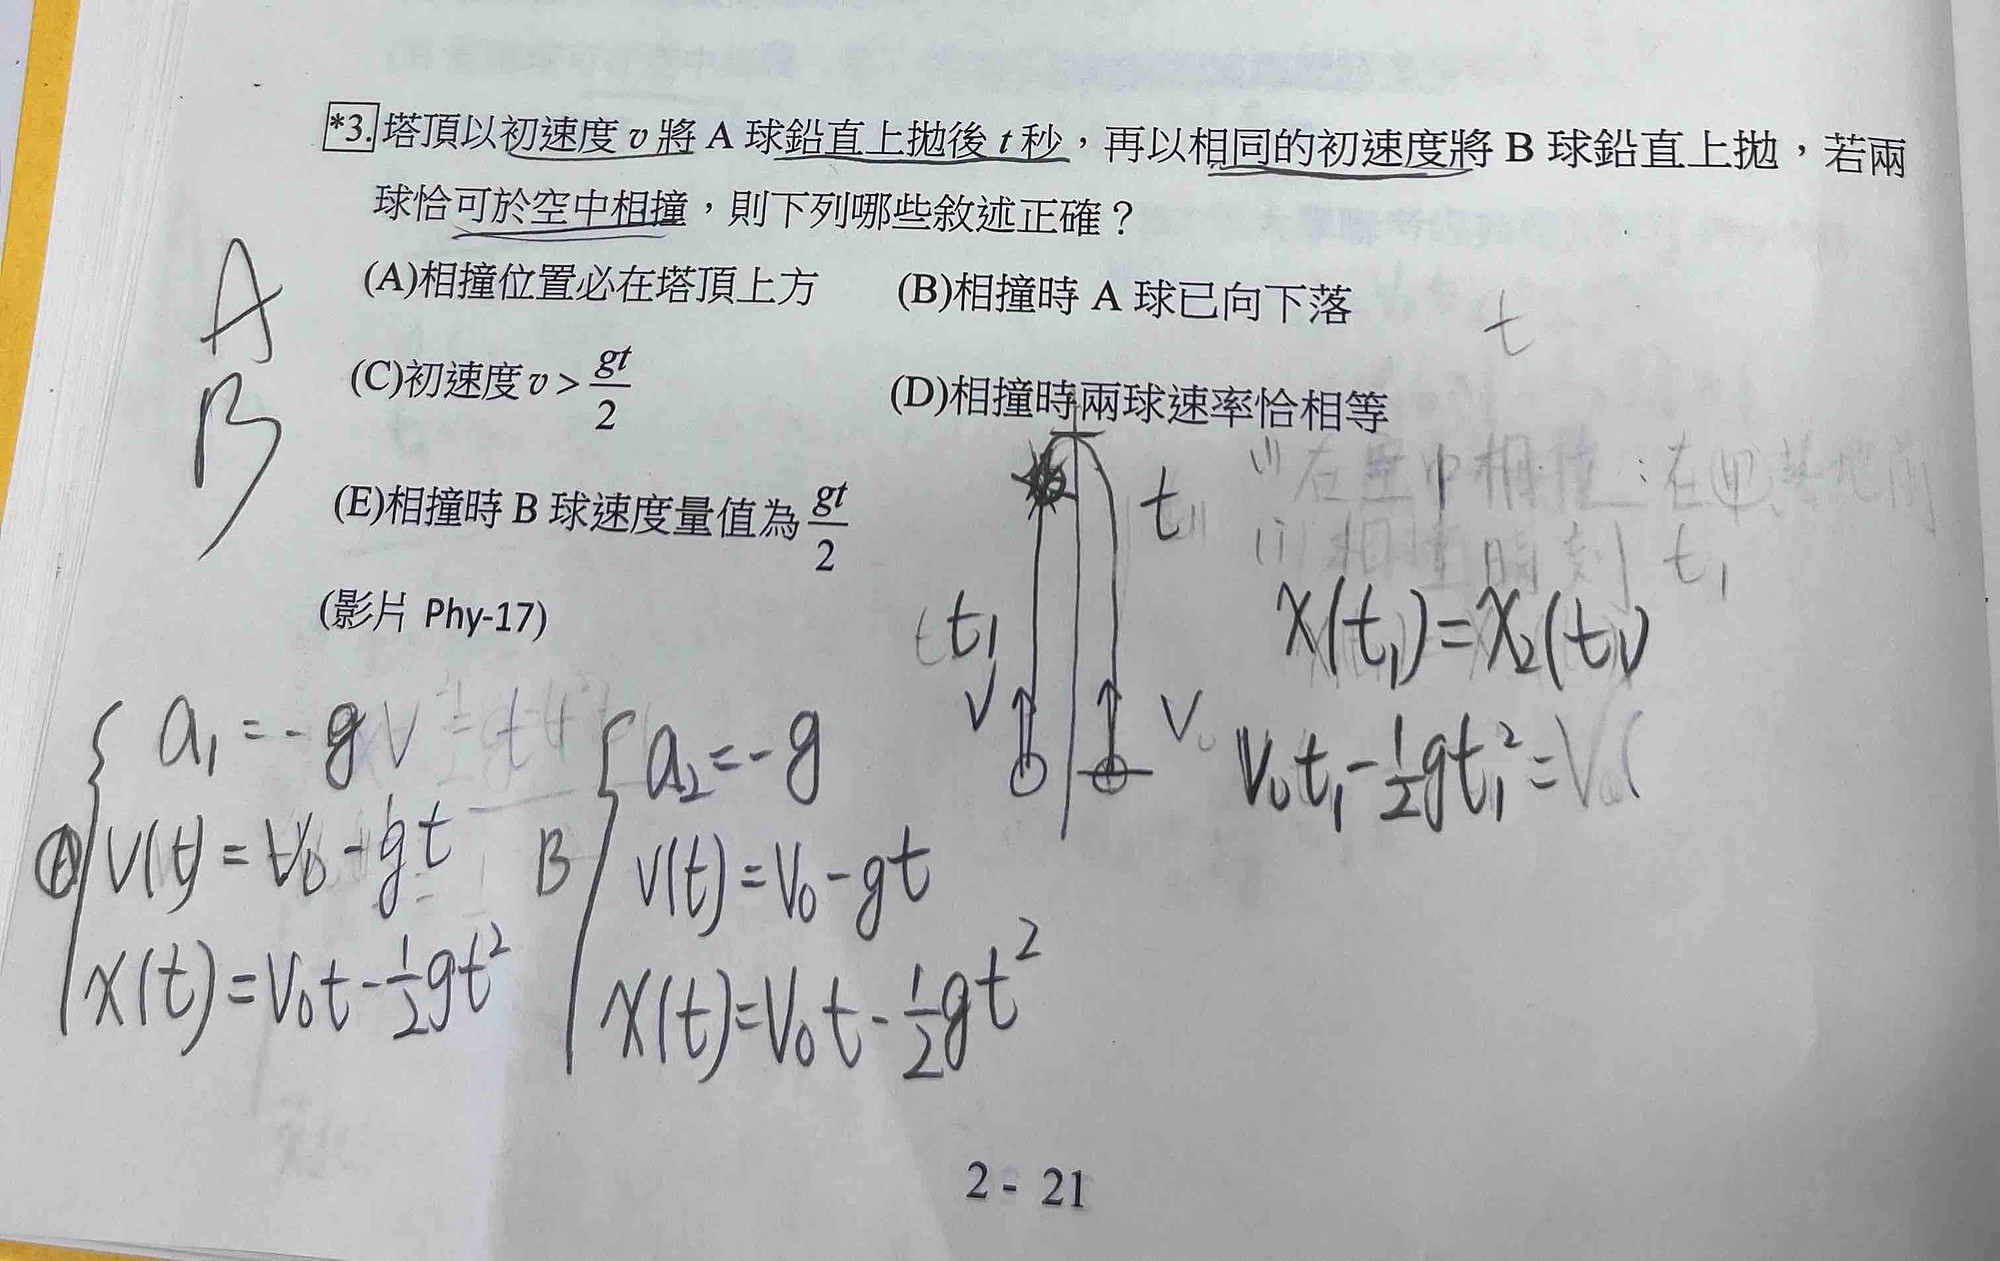 *3. 塔頂以初速度 v 將 A 球鉛直上拋後 t 秒，再以相同的初速度將 B 球鉛直上拋，若兩
球恰可於空中相撞，則下列哪些敘述正確？
(A)相撞位置必在塔頂上方 (B)相撞時 A 球已向下落
(C)初速度 v > gt/2 (D)相撞時兩球速率恰相等
(E)相撞時 B 球速度量值為 gt/2
(影片 Phy-17)
A
B
t
t
t₁
V
V₀
在空中相撞
相撞時刻 t₁
X(t₁)=X₂(t₁)
V₀t₁-½gt₁²=V₀(
A
a₁=-g
V(t)=V₀-gt
X(t)=V₀t-½gt²
B
a₂=-g
V(t)=V₀-gt
X(t)=V₀t-½gt²
2 - 21